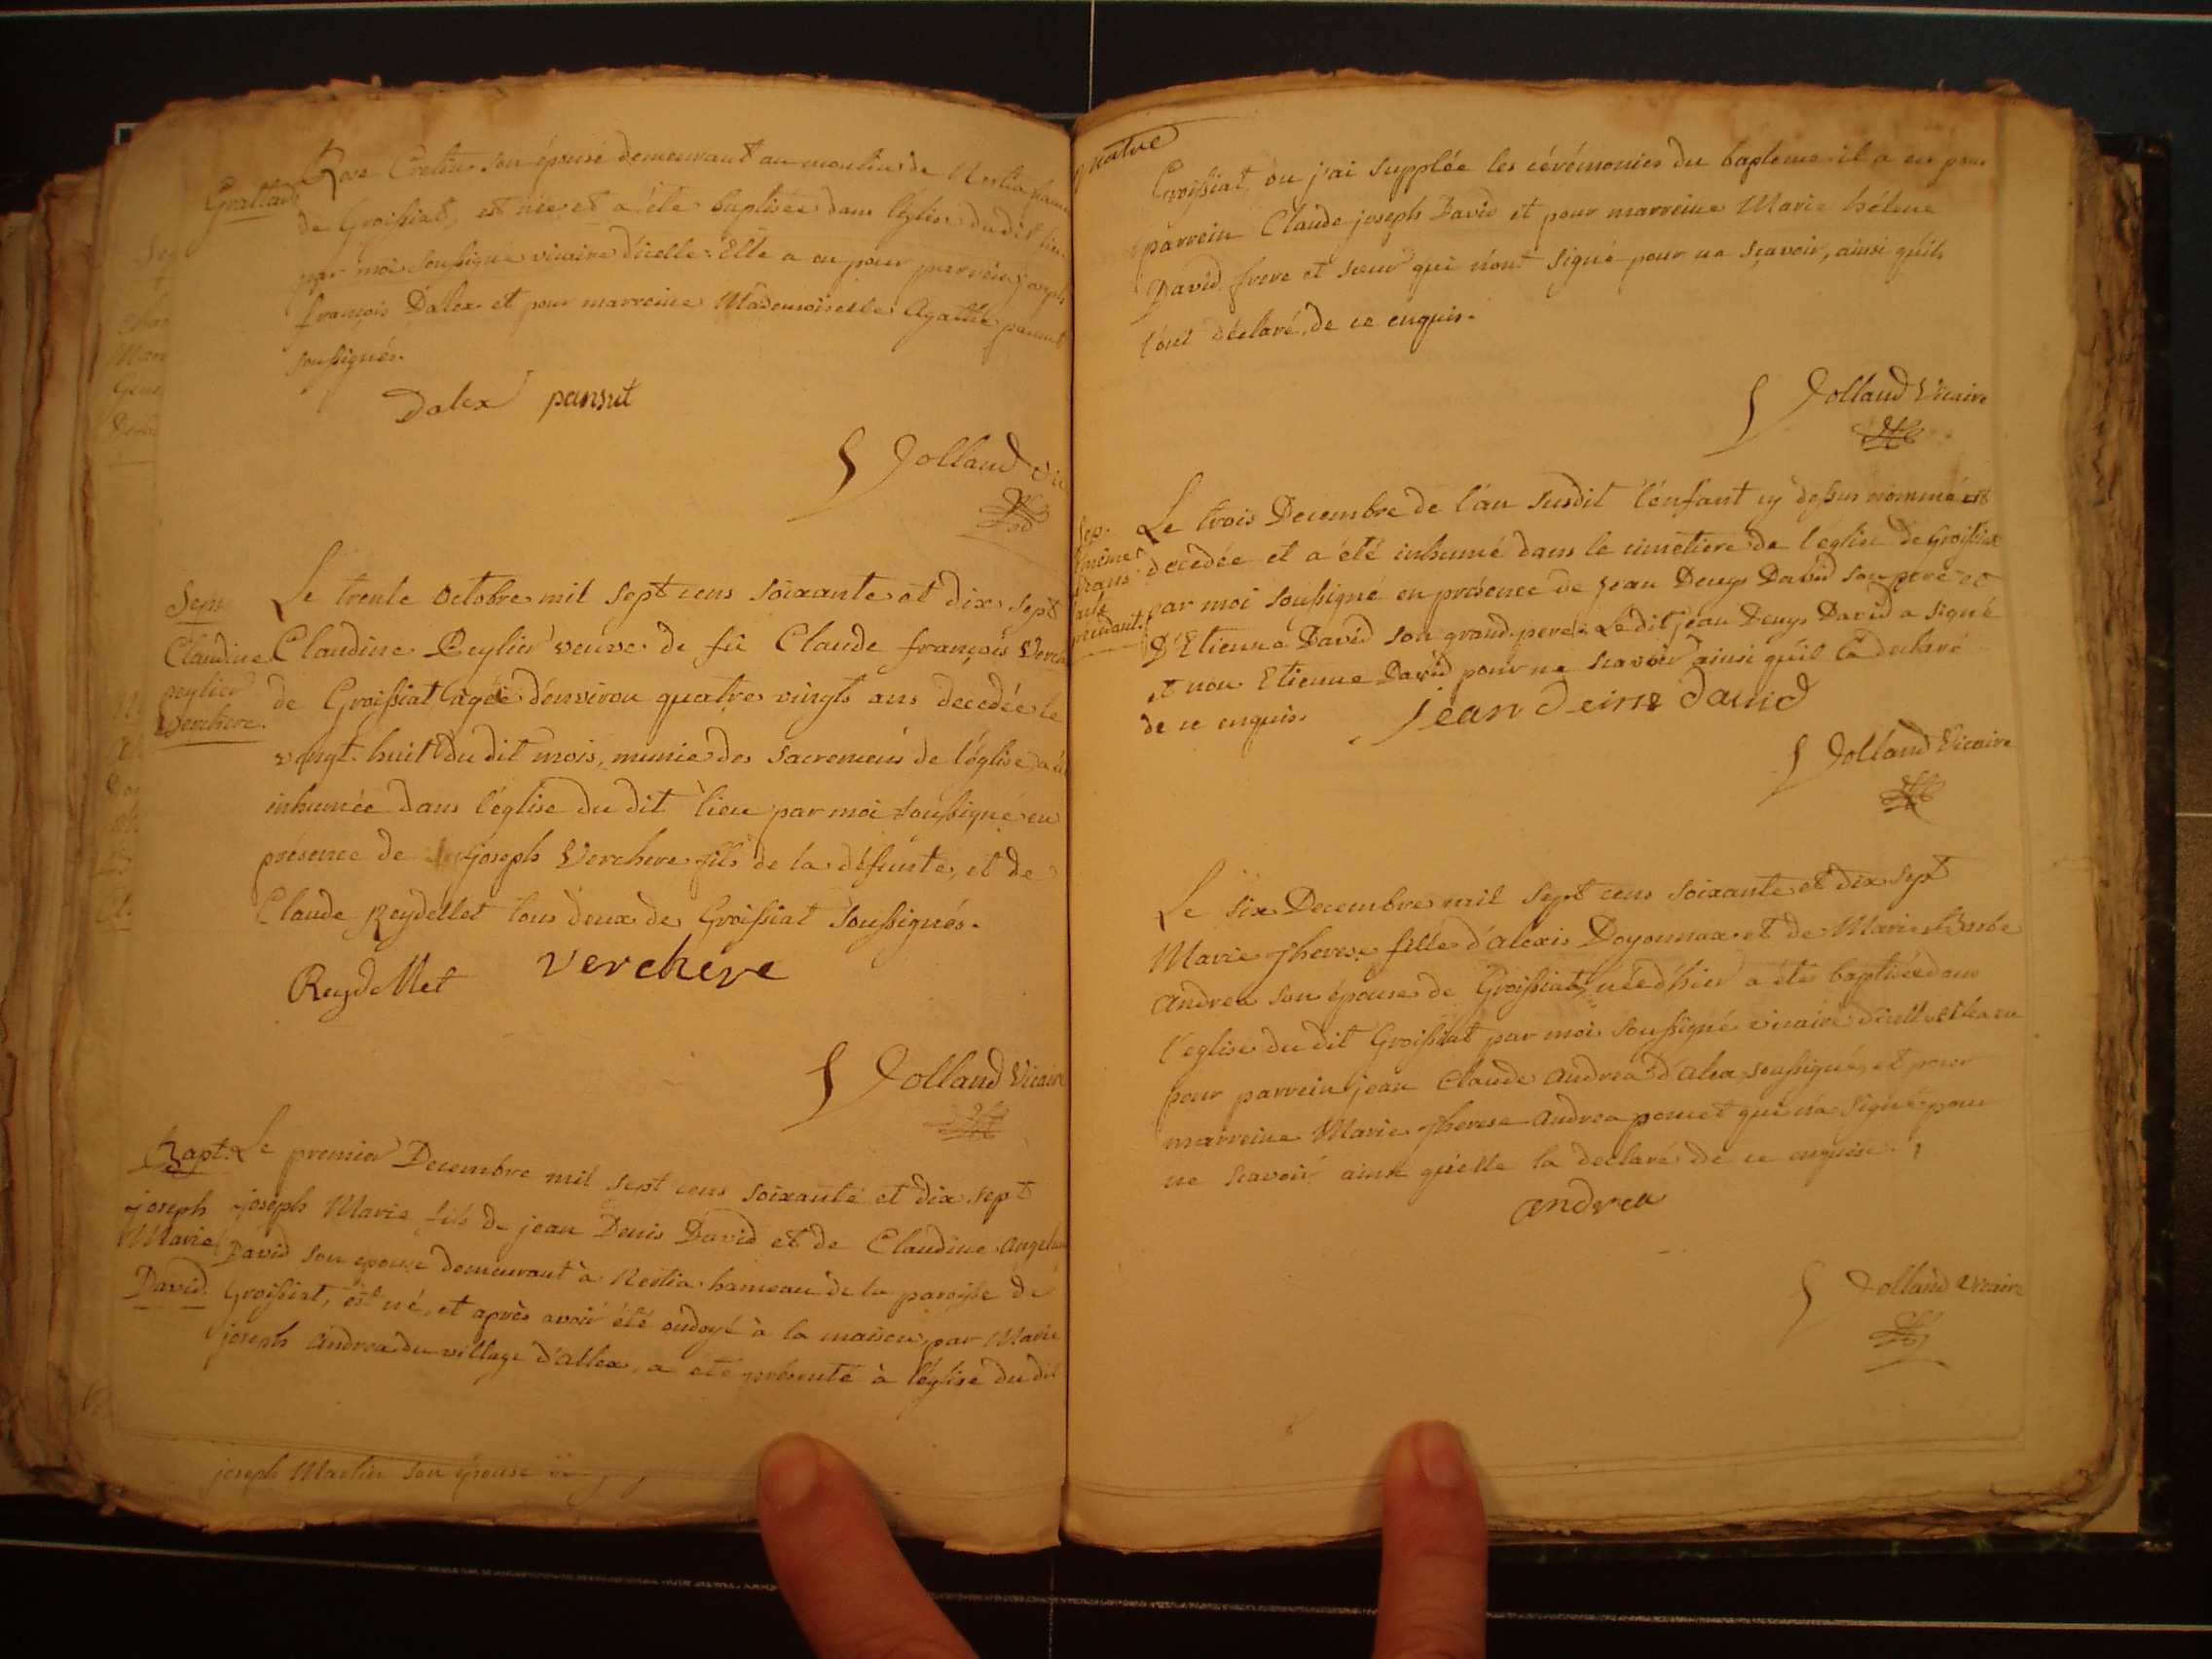 Grattard
Rose Cretin son épouse demeurant au moulin de
de Groissiat, est née et a été baptisée dans l'église du dit lieu
par moi soussigné vicaire d'icelle: Elle a eu pour parrein joseph
françois Dalex et pour marreine Mademoiselle Agathe pansut
soussignés.
Dalex pansut
Jolland
Sep.
Claudine
peylier
verchere.
Le trente Octobre mil sept cens soixante et dix sept
Claudine Peylier veuve de fû Claude françois
de Groissiat agée d'environ quatre vingts ans decedée le
vingt-huit du dit mois, munie des sacremens de l'église a
inhumée dans l'église du dit lieu par moi soussigné en
présence de joseph Verchere fils de la défunte, et de
Claude Reydellet tous deux de Groissiat soussignés.
Reydellet verchere
Jolland Vicaire
Bapt.
joseph
Marie
David.
Le premier Decembre mil sept cens soixante et dix sept
joseph Marie fils de jean Denis David et de Claudine
David son epouse demeurant à hameau de la paroisse de
Groissiat, est né, et après avoir été ondoyé à la maison, par Marie
joseph Andrea du village d'allex, a été présenté à l'église du dit
joseph Martin son épouse
quatre
Groissiat, ou j'ai supplée les cérémonies du bapteme il a eu pour
parrein Claude joseph David et pour marreine Marie héleine
David frere et soeur qui n'ont signé pour ne sçavoir, ainsi qu'ils
l'ont déclaré, de ce enquis.
Jolland Vicaire
Sep.
Le trois Decembre de l'an susdit l'enfant cy dessus nommé est
decedée et a été inhumé dans le cimetiere de l'eglise de Groissiat
par moi soussigné en présence de jean Denys David son pere et
D'Etienne David son grand-pere. Le dit jean Denys David a signé
et non Etienne David pour ne scavoir ainsi qu'il l'a declaré
de ce enquis.
jean David
Jolland Vicaire
Le six Decembre mil sept cens soixante et dix sept
Marie Therese fille d'alexis Doyonnax et de Marie Barbe
Andrea son épouse de Groissiat, née d'hier a été baptisée dans
l'eglise du dit Groissiat par moi soussigné vicaire d'icelle et
pour parrein jean Claude Andrea d'alex soussigné, et pour
marreine Marie Therese Andrea poncet qui n'a signé pour
ne scavoir ainsi qu'elle la declaré de ce enquise.
andrea
Jolland Vicaire